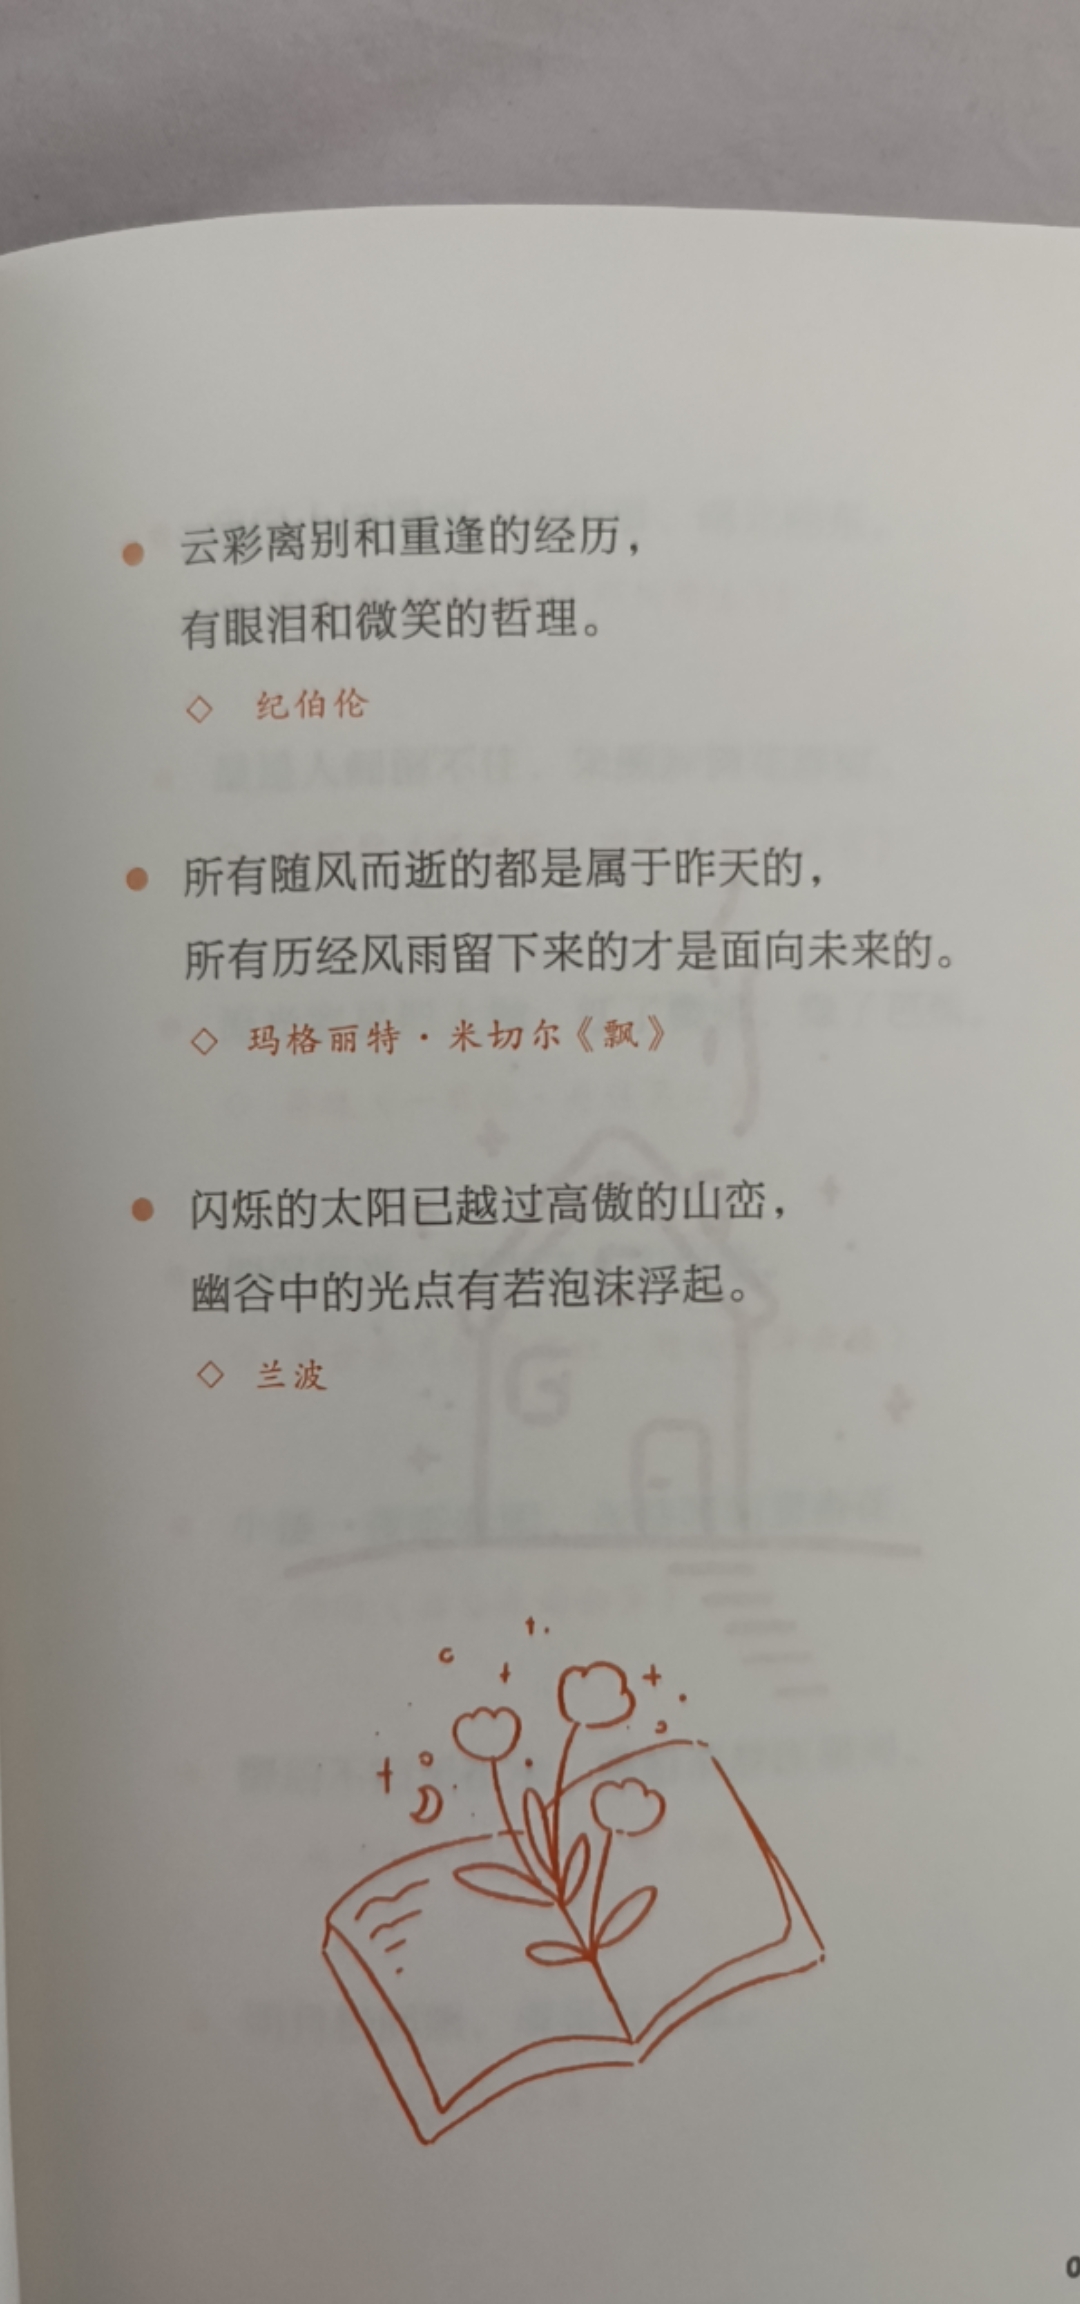 云彩离别和重逢的经历，
有眼泪和微笑的哲理。
◇ 纪伯伦
所有随风而逝的都是属于昨天的，
所有历经风雨留下来的才是面向未来的。
◇ 玛格丽特·米切尔《飘》
闪烁的太阳已越过高傲的山峦，
幽谷中的光点有若泡沫浮起。
◇ 兰波
0